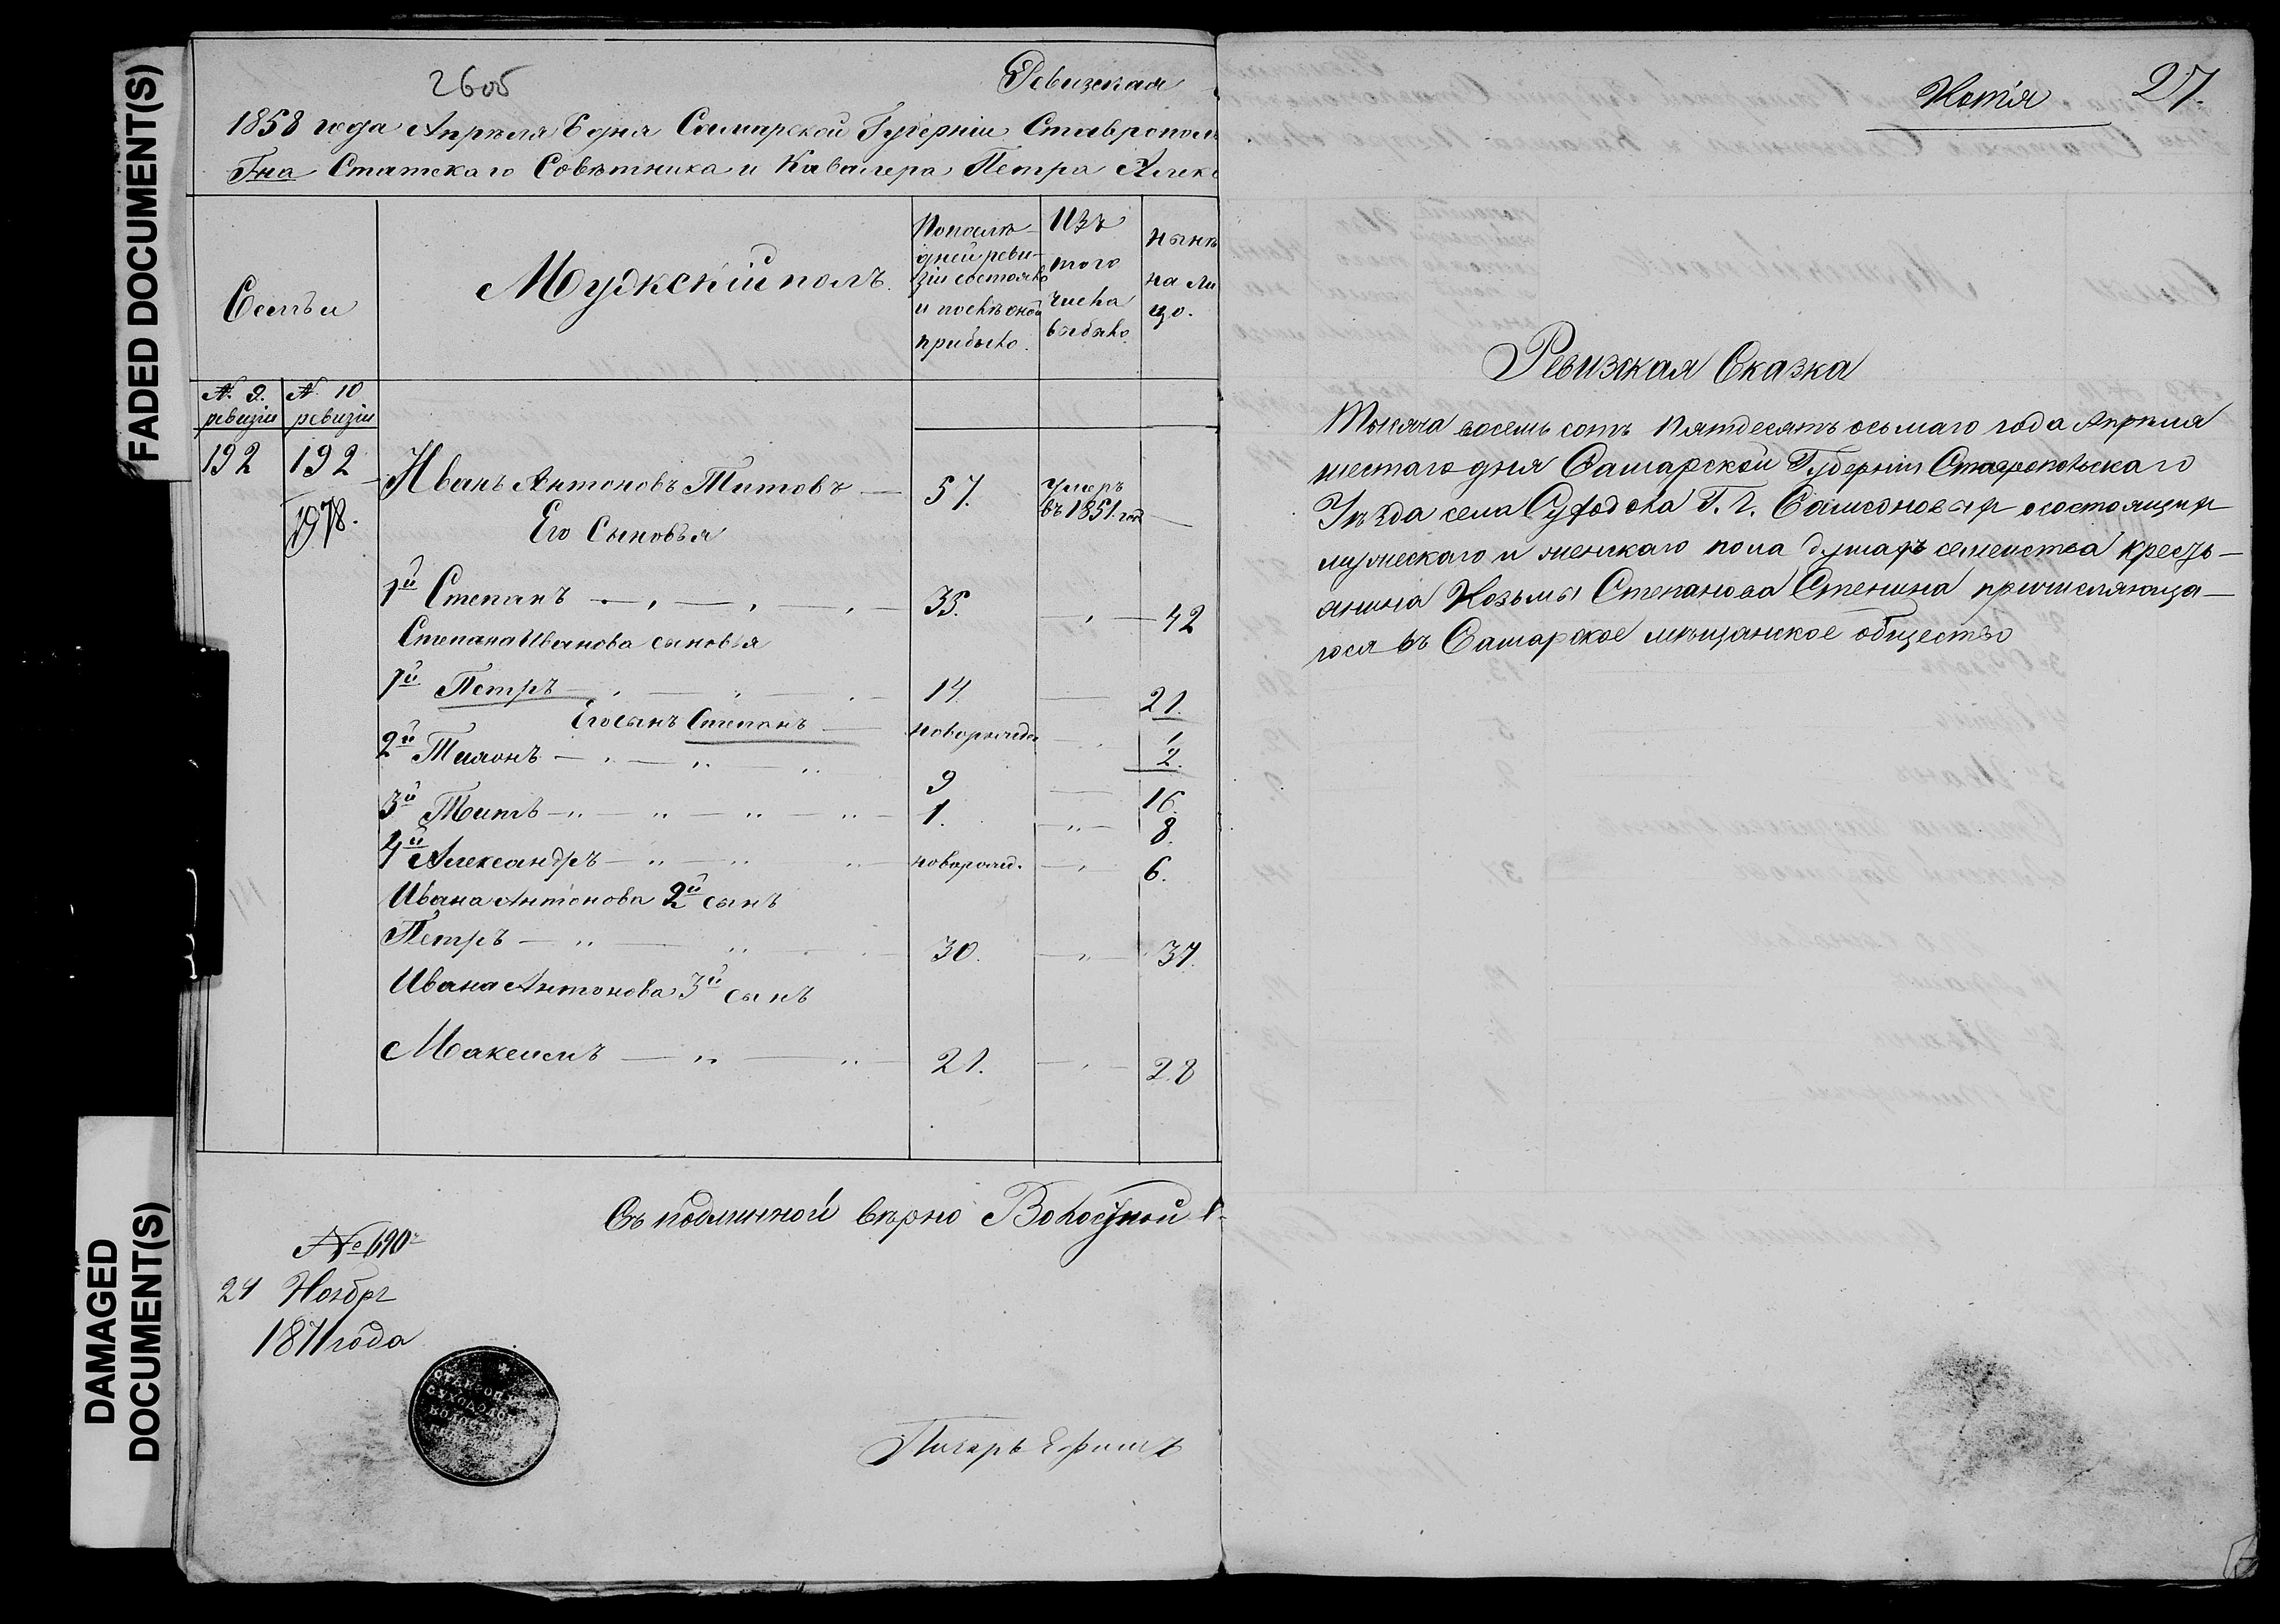 FADED DOCUMENT(S)
DAMAGED
DOCUMENT(S)
26об
Ревизская
1858 года Апрѣля 6 дня Самарской Губерніи Ставрополь
Гна Статскаго Совѣтника и Кавалера Петра Алекс
Семьи
Мужскій полъ.
Попослѣ-
дней реви-
зіи состояло
и послѣ оной
прибыло.
Изъ
того
числа
выбыло.
Нынѣ
на ли
цо.
№ 9.
ревизіи
№ 10
ревизіи
192 192 Иванъ Антоновъ Титовъ — 57. умеръ
въ 1851. год
1978.
Его Сыновья
1й Степанъ 35. 42
Степана Иванова сыновья
1й Петръ 14 21.
Его сынъ Степанъ новорожд. 1/2.
2й Тихонъ 9 16.
3й Титъ 1. 8.
4й Александръ новорожд. 6.
Ивана Антонова 2й сынъ
Петръ 30. 37.
Ивана Антонова 3й сынъ
Максимъ 21. 28
Съ подлинной вѣрно Волостной
№ 690
24 Ноябр
1871 года
Писарь
27.
Копія
Ревизская Сказка
Тысяча восемь сотъ пятдесятъ осьмаго года Апрѣля
шестаго дня Самарской Губерніи Ставропольскаго
Уѣзда села Суходола Г. г. Самсоновыхъ о состоящихъ
мужескаго и женскаго пола душахъ семейства кресть-
янина Козьмы Степанова Стенина причисляюща-
гося въ Самарское мѣщанское общество